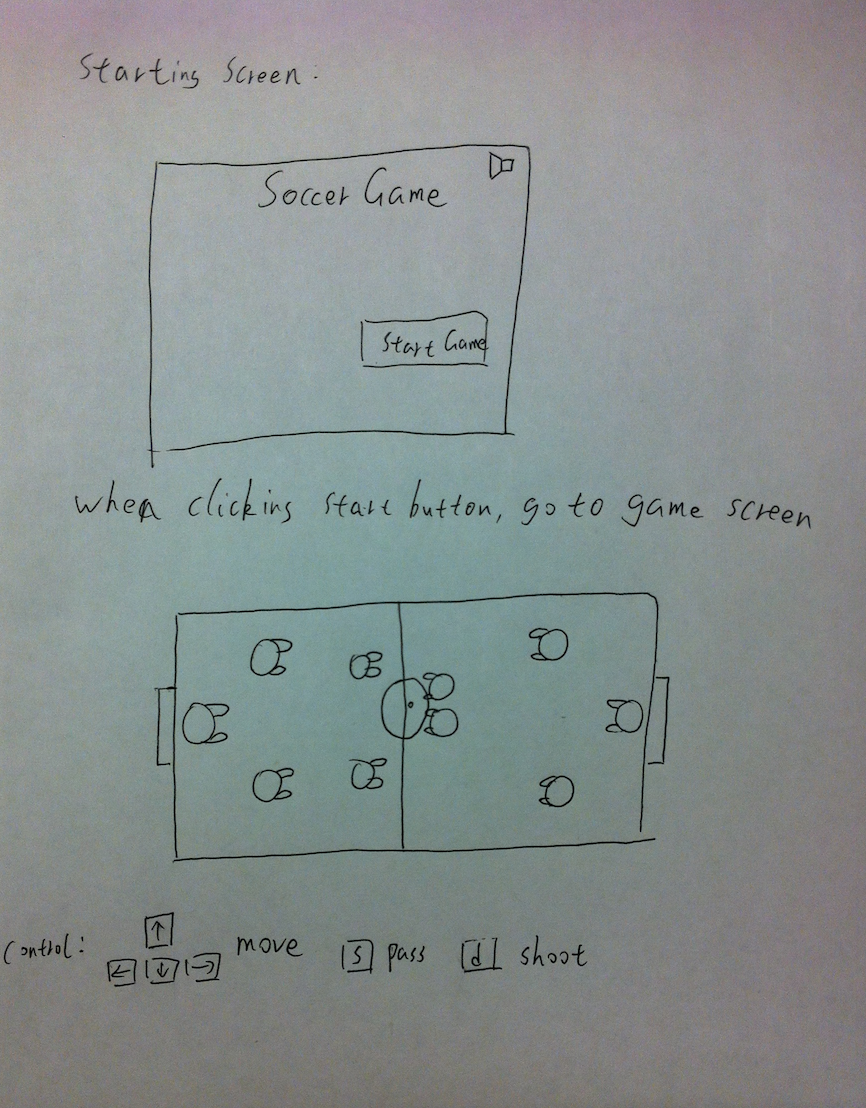 Starting Screen:
Soccer Game
Start Game
when clicking start button, go to game screen
Control: ↑ ← ↓ → move s pass d shoot